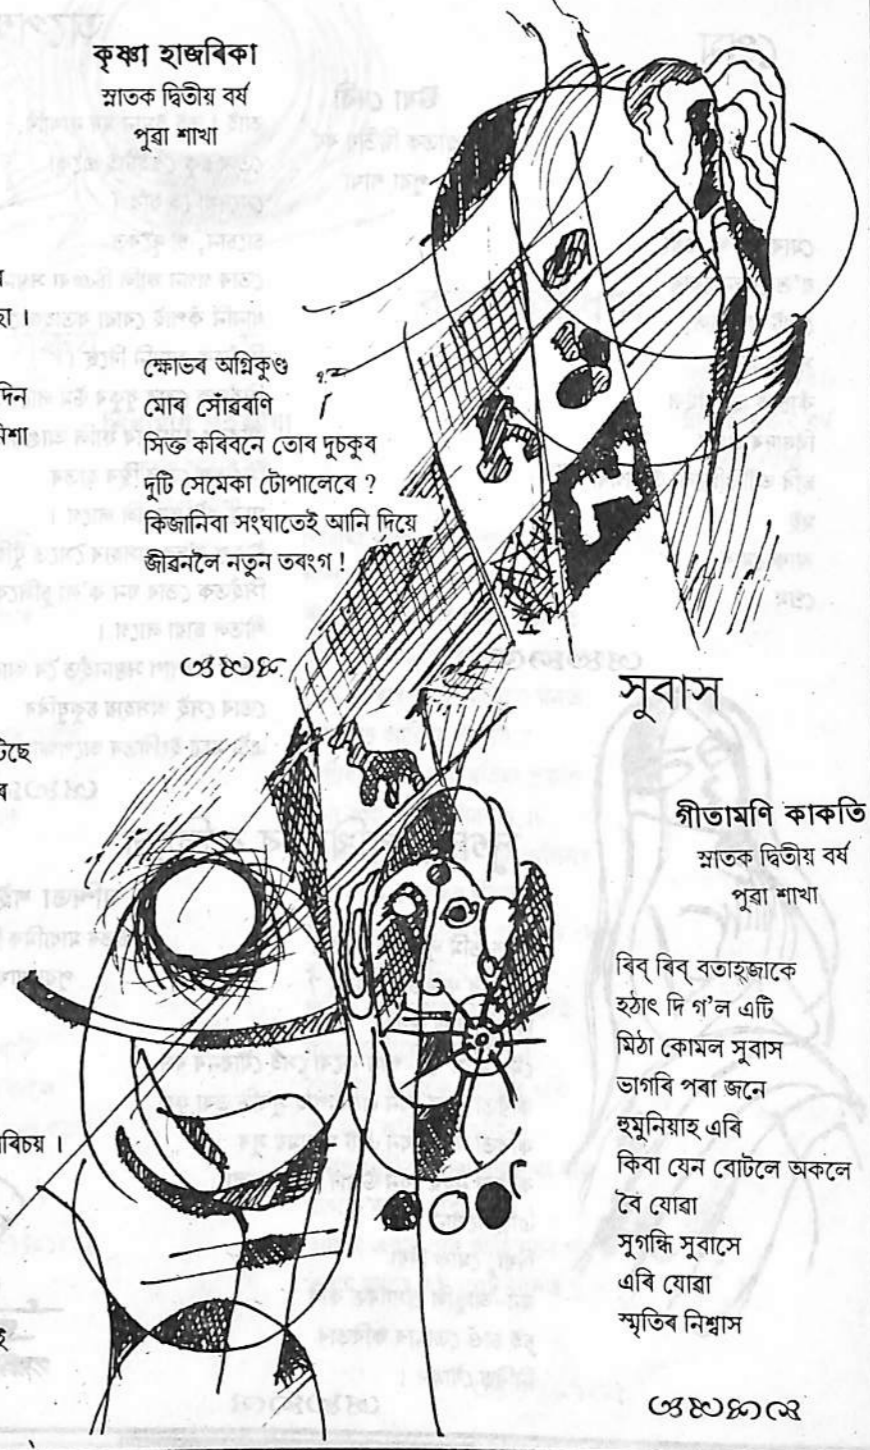 কৃষ্ণা হাজৰিকা
স্নাতক দ্বিতীয় বৰ্ষ
পুৱা শাখা
হা।
দিন
নিশা
টিছে
ৰিচয়।
ক্ষোভৰ অগ্নিকুণ্ড
মোৰ সোঁৱৰণি
সিক্ত কৰিবনে তোৰ দুচকুৰ
দুটি সেমেকা টোপালেৰে ?
কিজানিবা সংঘাতেই আনি দিয়ে
জীৱনলৈ নতুন তৰংগ !
সুবাস
গীতামণি কাকতি
স্নাতক দ্বিতীয় বৰ্ষ
পুৱা শাখা
ৰিব্ ৰিব্ বতাহজাকে
হঠাৎ দি গ'ল এটি
মিঠা কোমল সুবাস
ভাগৰি পৰা জনে
হুমুনিয়াহ এৰি
কিবা যেন বোটলে অকলে
বৈ যোৱা
সুগন্ধি সুবাসে
এৰি যোৱা
স্মৃতিৰ নিশ্বাস